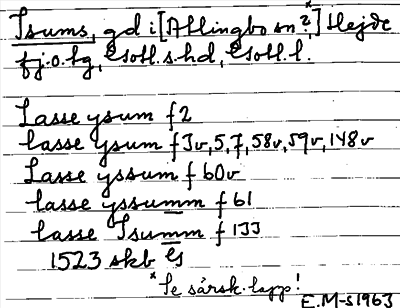 Isums, gd i [Allingbo sn?*] Hejde
fj.o.tg, Gotl.s.hd, Gotl.l.
Lasse ysum f 2
lasse ysum f 3v, 5, 7, 58v, 59v, 148v
Lasse yssum f 60v
lasse yssumm f 61
lasse Isumm f 133
1523 skb Gs
*Se särsk. lapp!
E.M-s 1963